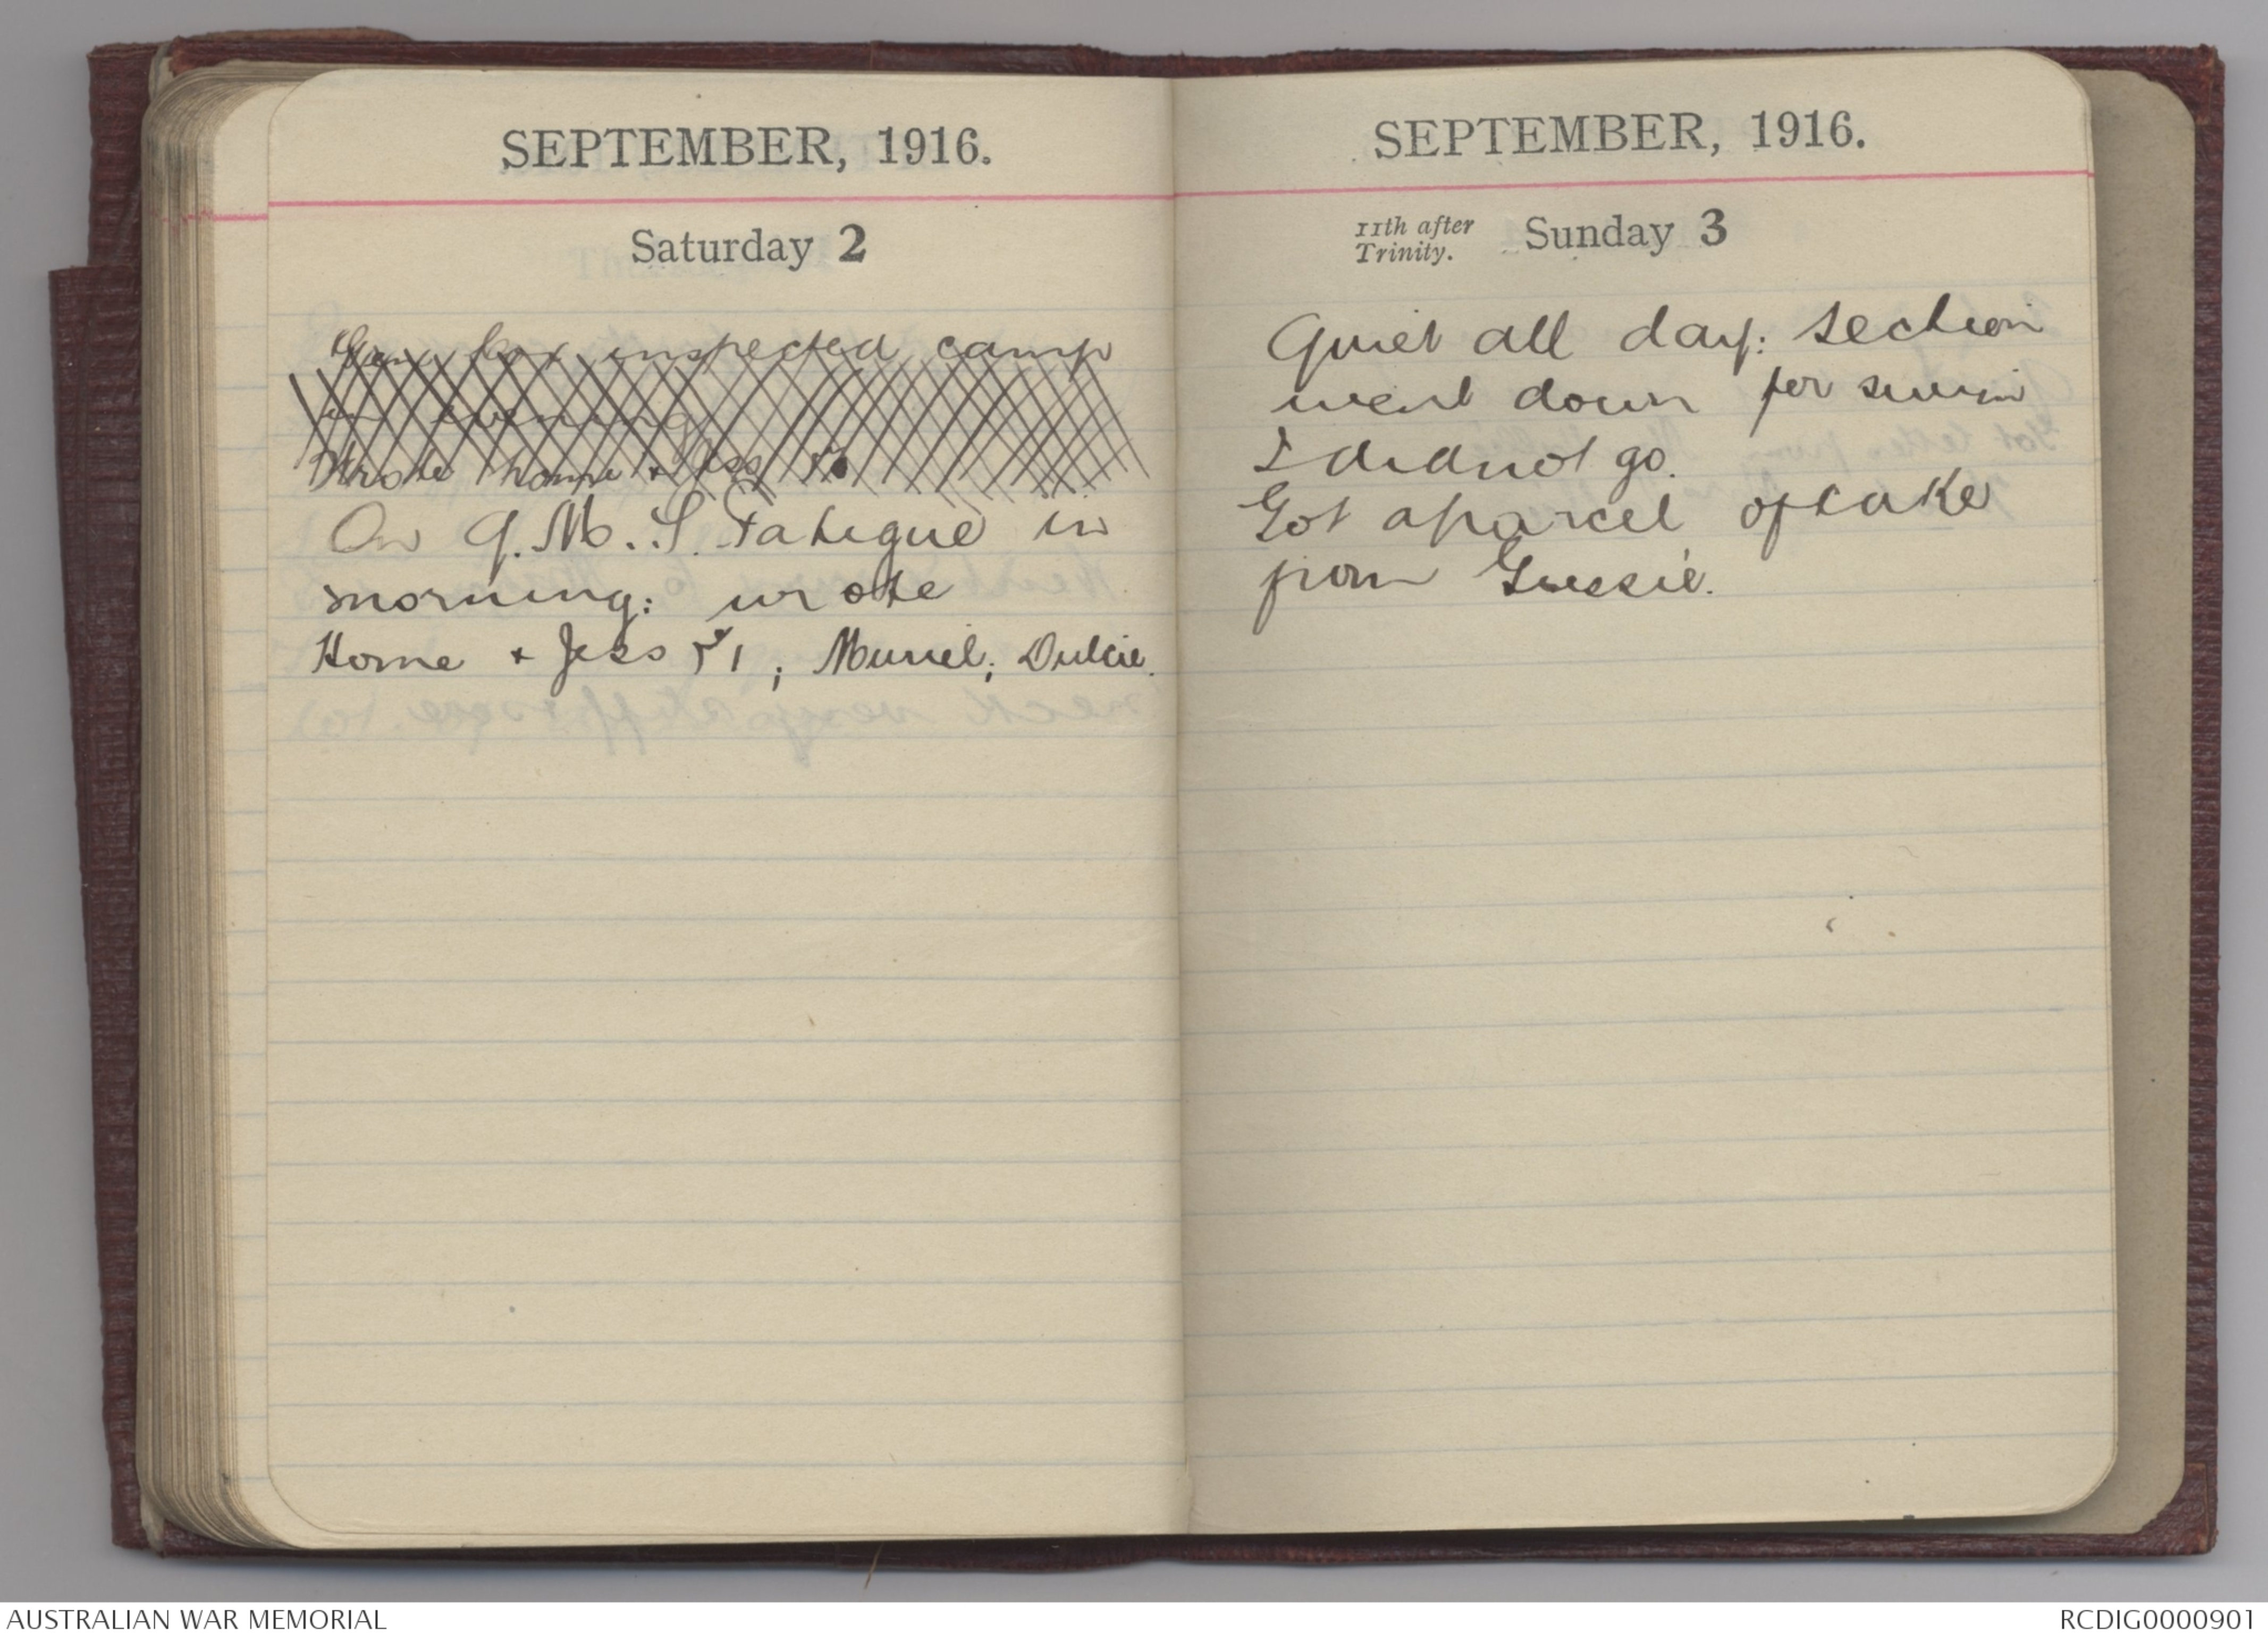 SEPTEMBER, 1916.
Saturday 2
inspected camp
in evening
Wrote home + Jess
On Q.M.S. Fatigue in
morning: wrote
Home + Jess 51; Muriel; Dulcie.
SEPTEMBER, 1916.
11th after
Trinity.
Sunday 3
Quiet all day: section
went down for swim
I did not go.
Got a parcel of cake
from Gussie.
AUSTRALIAN WAR MEMORIAL
RCDIG0000901